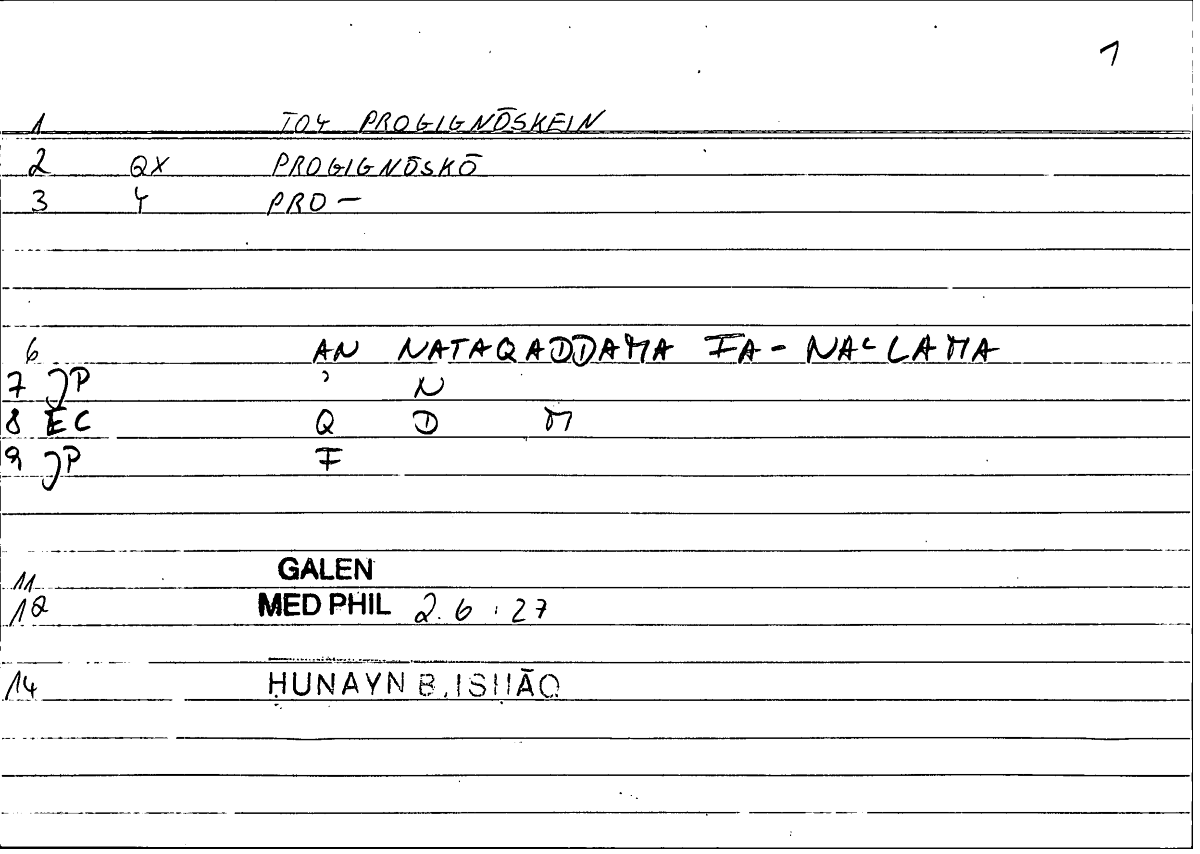 1
1 TOY PROGIGNŌSKEIN
2 QX PROGIGNŌSKŌ
3 Y PRO—
6 AN NATAQADDAMA FA- NAʿLAMA
7 JP ʾ N
8 EC Q D M
9 JP F
11 GALEN
12 MED PHIL 2.6 : 27
14 ḤUNAYN B. ISḤĀQ